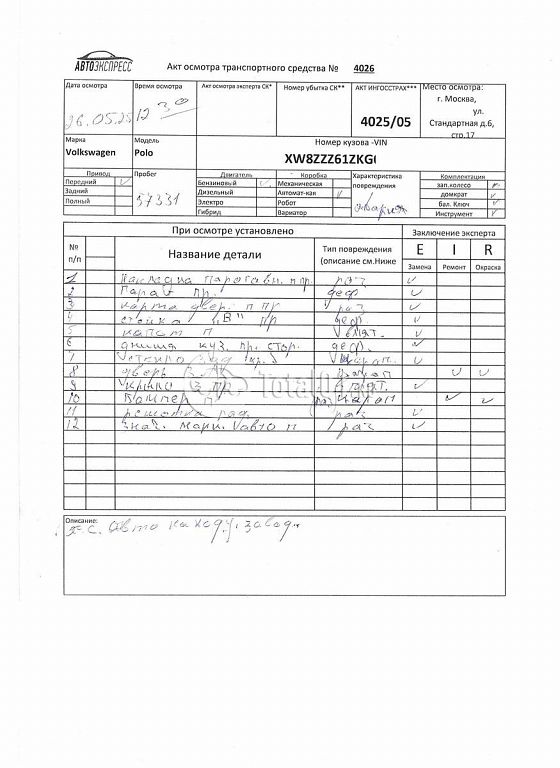 АВТОЭКСПРЕСС
Акт осмотра транспортного средства № 4026
Дата осмотра
Время осмотра
Акт осмотра эксперта СК*
Номер убытка СК**
АКТ ИНГОССТРАХ***
Место осмотра:
г. Москва,
ул.
Стандартная д.6,
стр.17
26.05.25
12 30
4025/05
Марка
Модель
Номер кузова -VIN
Volkswagen
Polo
XW8ZZZ61ZKG
Привод
Пробег
Двигатель
Коробка
Характеристика
повреждения
Комплектация
Передний
Бензиновый
Механическая
зап.колесо
Задний
Дизельный
Автомат-кая
домкрат
Полный
57331
Электро
Робот
авария
бал. Ключ
Гибрид
Вариатор
Инструмент
При осмотре установлено
Заключение эксперта
№
п/п
Название детали
Тип повреждения
(описание см.Ниже
E I R
Замена Ремонт Окраска
1 Накладка пр раз
2 пр. деф
3 карта двер. п пр раз
4 стойка "В" пр деф
5 капот п
6 днища куз. пр. стор. деф.
7
8 дверь
9 пр
10 Бампер п
11 решотка рад. раз
12 знач. марк. авто п раз
Total
Описание:
т.с. авто на ходу, завод.